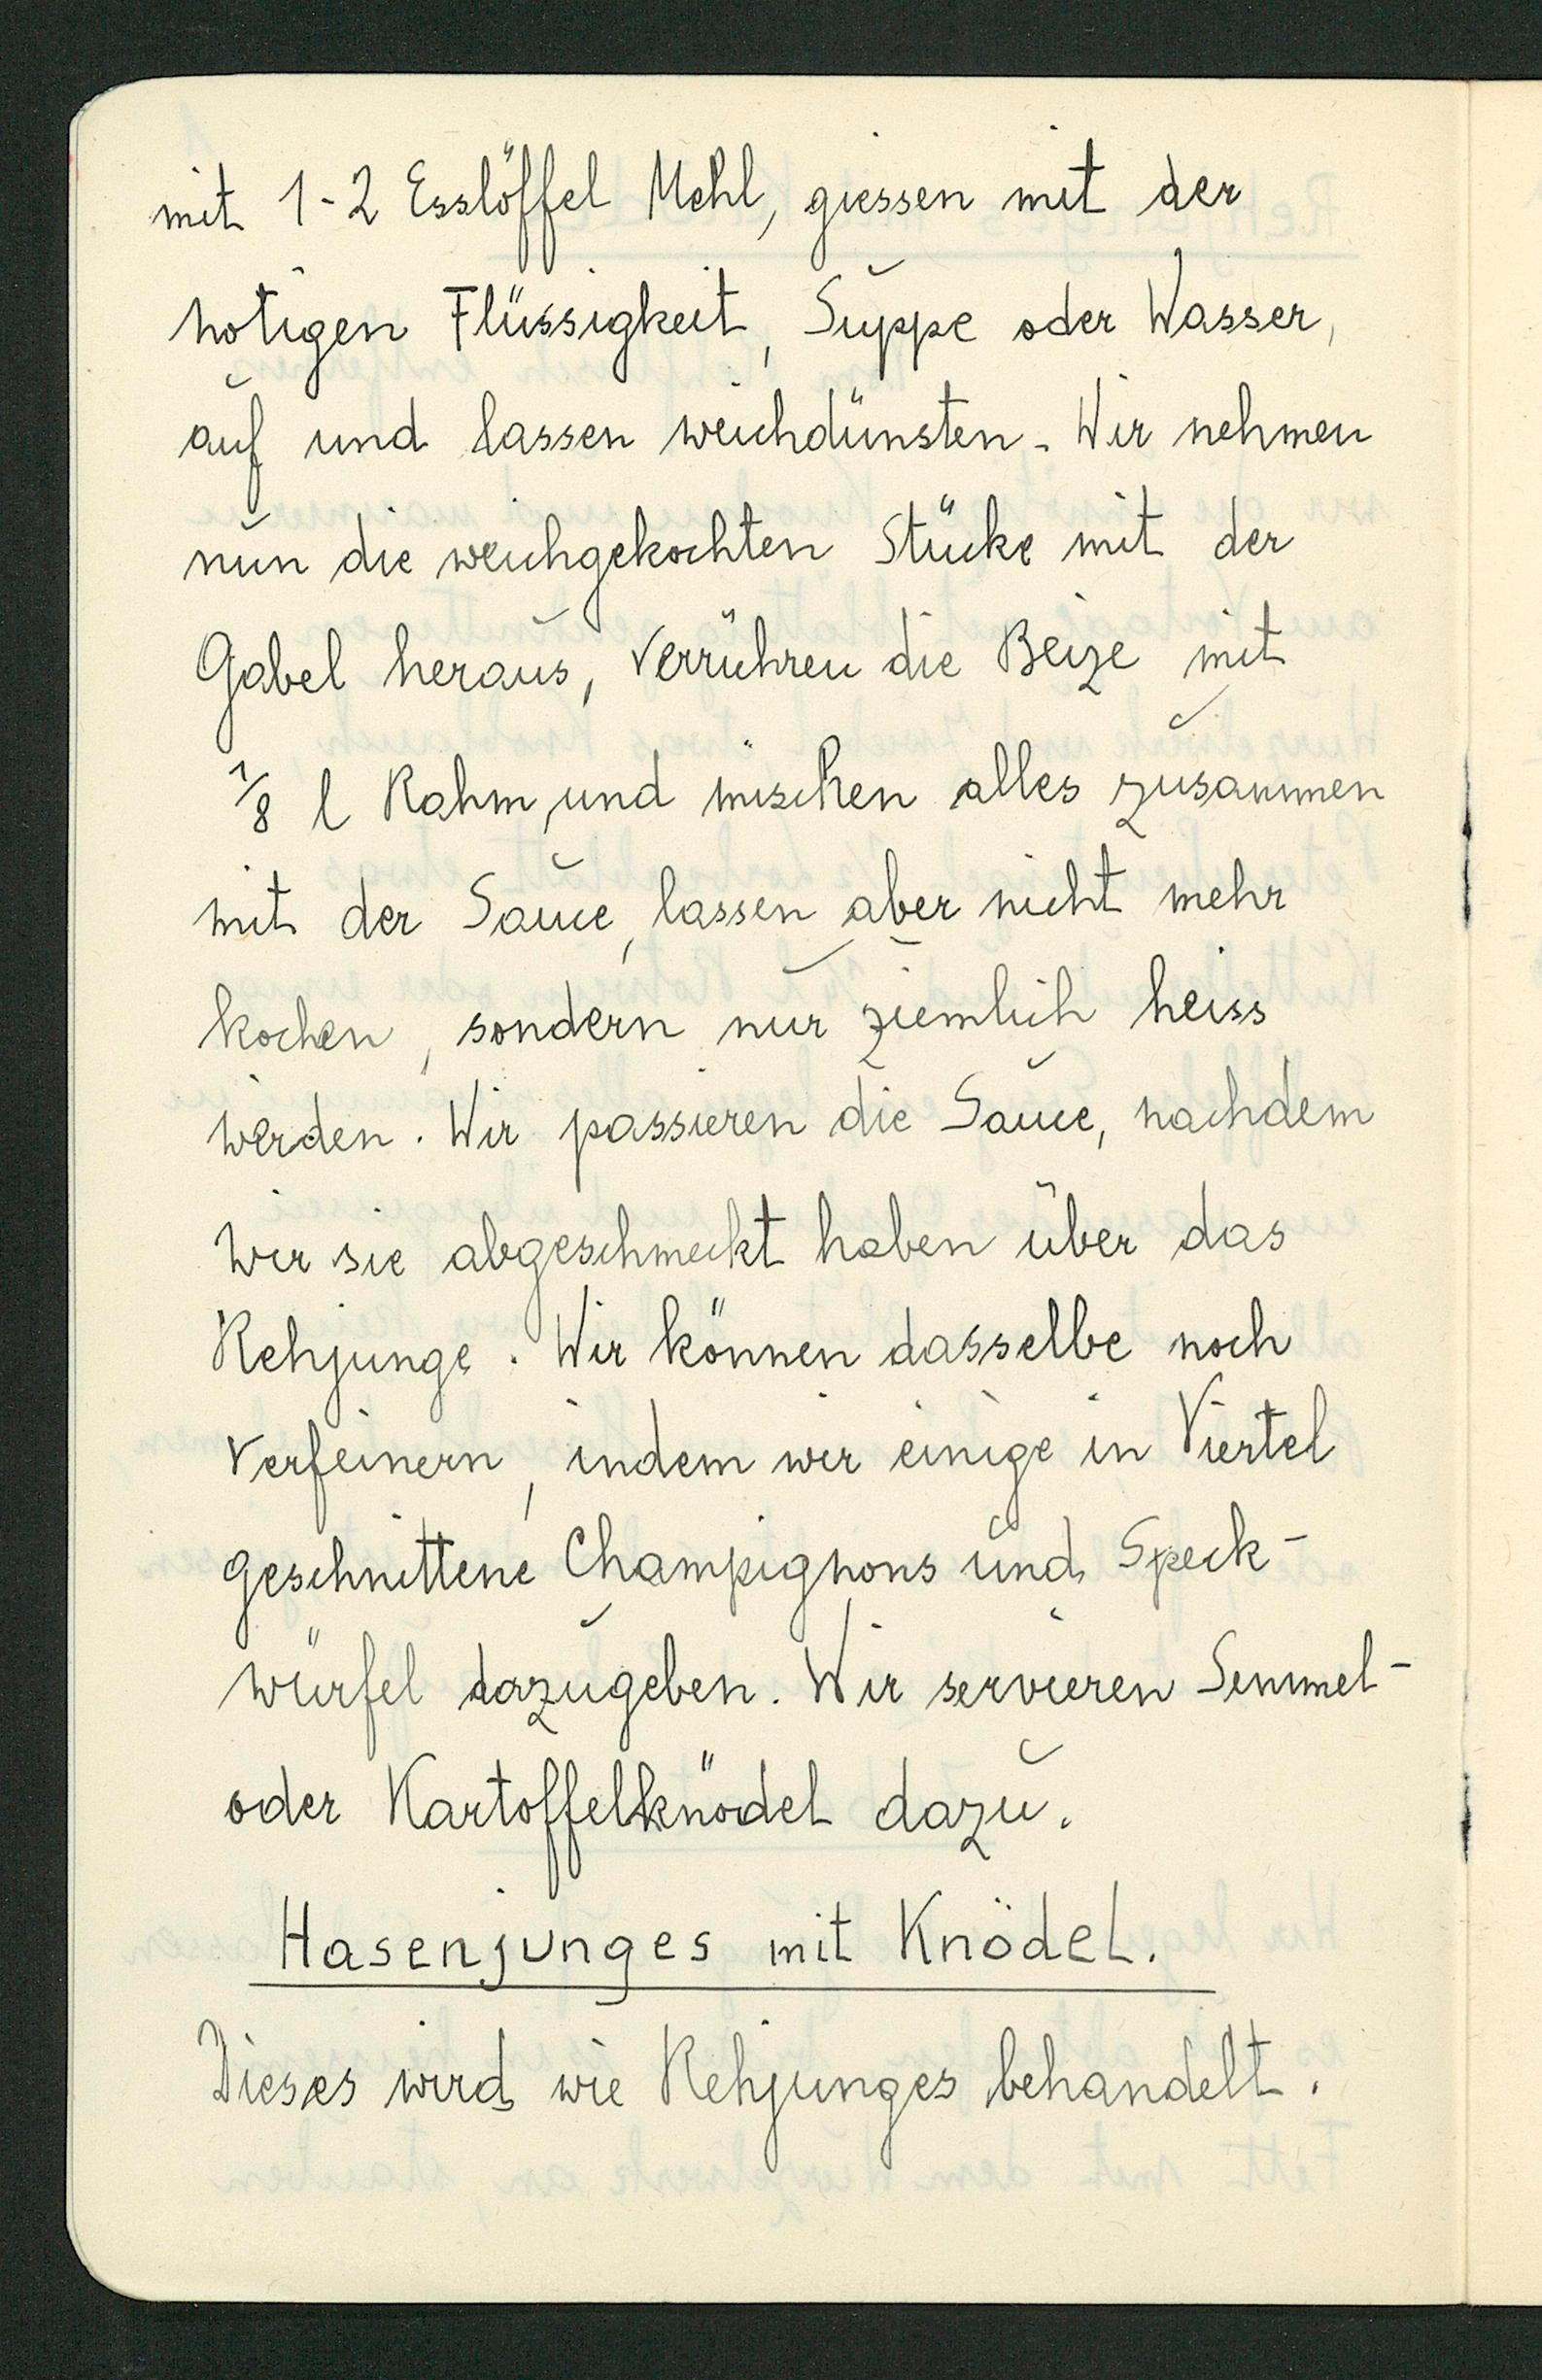 mit 1-2 Esslöffel Mehl, giessen mit der
notigen Flüssigkeit, Suppe oder Wasser,
auf und lassen weichdünsten. Wir nehmen
nun die weichgekochten Stücke mit der
Gabel heraus, verrühren die Beize mit
1/8 l Rahm, und mischen alles zusammen
mit der Sauce, lassen aber nicht mehr
kochen, sondern nur ziemlich heiss
werden. Wir passieren die Sauce, nachdem
wir sie abgeschmeckt haben über das
Rehjunge. Wir können dasselbe noch
verfeinern, indem wir einige in Viertel
geschnittene Champignons und Speck-
würfel dazugeben. Wir servieren Semmel-
oder Kartoffelknödel dazu.
Hasenjunges mit Knödel.
Dieses wird wie Rehjunges behandelt.